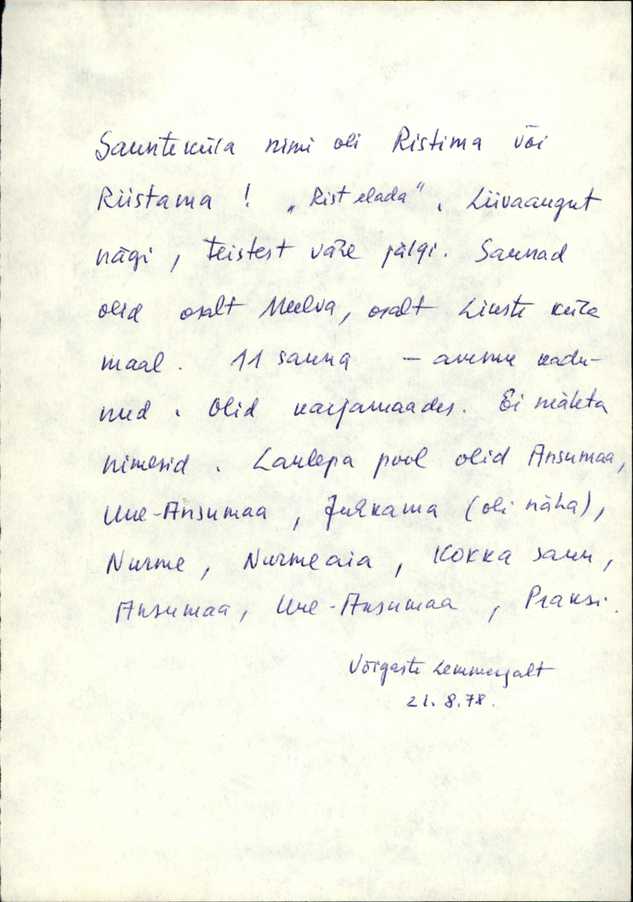 Saunteküla nimi oli Ristima või
Riistama! „Rist elada". Liivaaugut
nägi, teistest väre jälgi. Saunad
olid osalt Meelva, osalt Liuste küla
maal. 11 sauna – ammu kadu-
nud. Olid karjamaades. Ei mäleta
nimesid. Laulepa pool olid Ansumaa,
Uue-Ansumaa, Jukkama (oli näha),
Nurme, Nurmeaia, Kokka saun,
Ansumaa, Uue-Ansumaa, Praksi.
Võigaste
21.8.78.